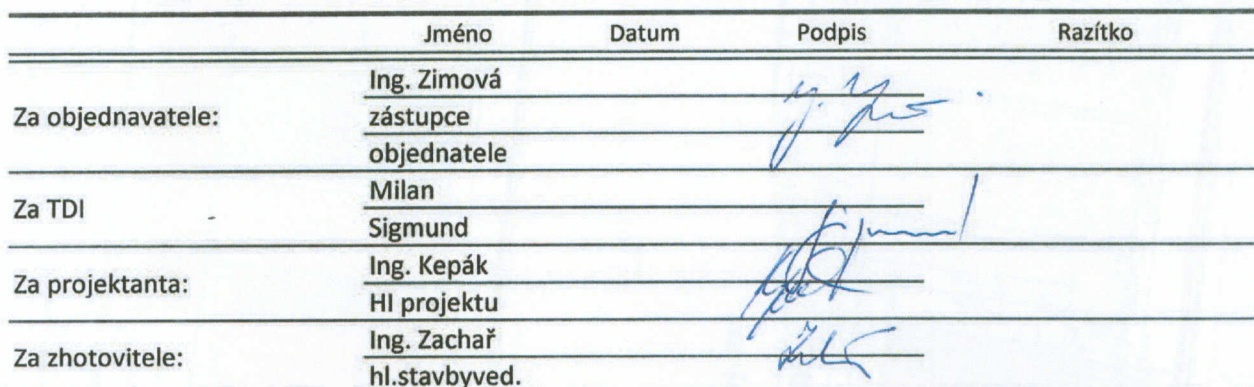 Jméno Datum Podpis Razítko
Ing. Zimová
Za objednavatele: zástupce
objednatele
Za TDI Milan
Sigmund
Za projektanta: Ing. Kepák
HI projektu
Za zhotovitele: Ing. Zachař
hl.stavbyved.